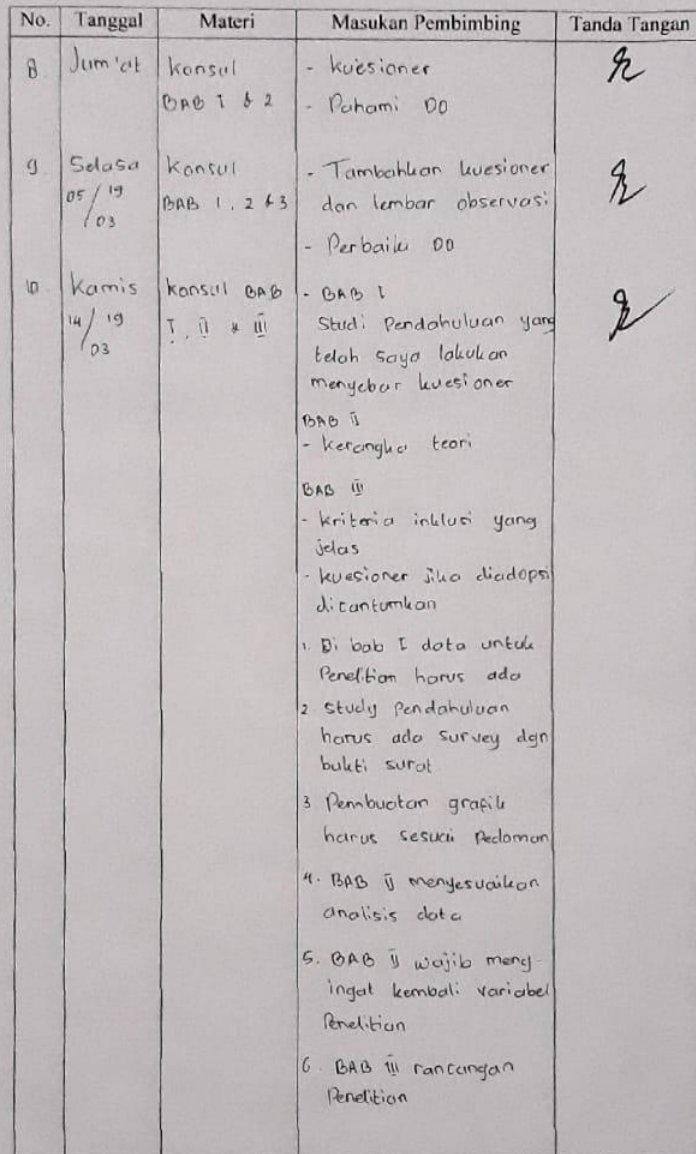 No. Tanggal Materi Masukan Pembimbing Tanda Tangan
8. Jum'at konsul - kuesioner
BAB 1 & 2 - Pahami DO
9 Selasa konsul - Tambahkan kuesioner
05/19 BAB 1, 2 & 3 dan lembar observasi
03
- Perbaiki DO
10. Kamis konsul BAB - BAB I
14/19 I, II & III Studi Pendahuluan yang
03 telah saya lakukan
menyebar kuesioner
BAB II
- kerangka teori
BAB III
- kriteria inklusi yang
jelas
- kuesioner jika diadopsi
dicantumkan
1. Di bab I data untuk
Penelitian harus ada
2 Study Pendahuluan
harus ada survey dgn
bukti surat
3 Pembuatan grafik
harus sesuai Pedoman
4. BAB II menyesuaikan
analisis data
5. BAB II wajib meng-
ingat kembali variabel
Penelitian
6. BAB III rancangan
Penelitian